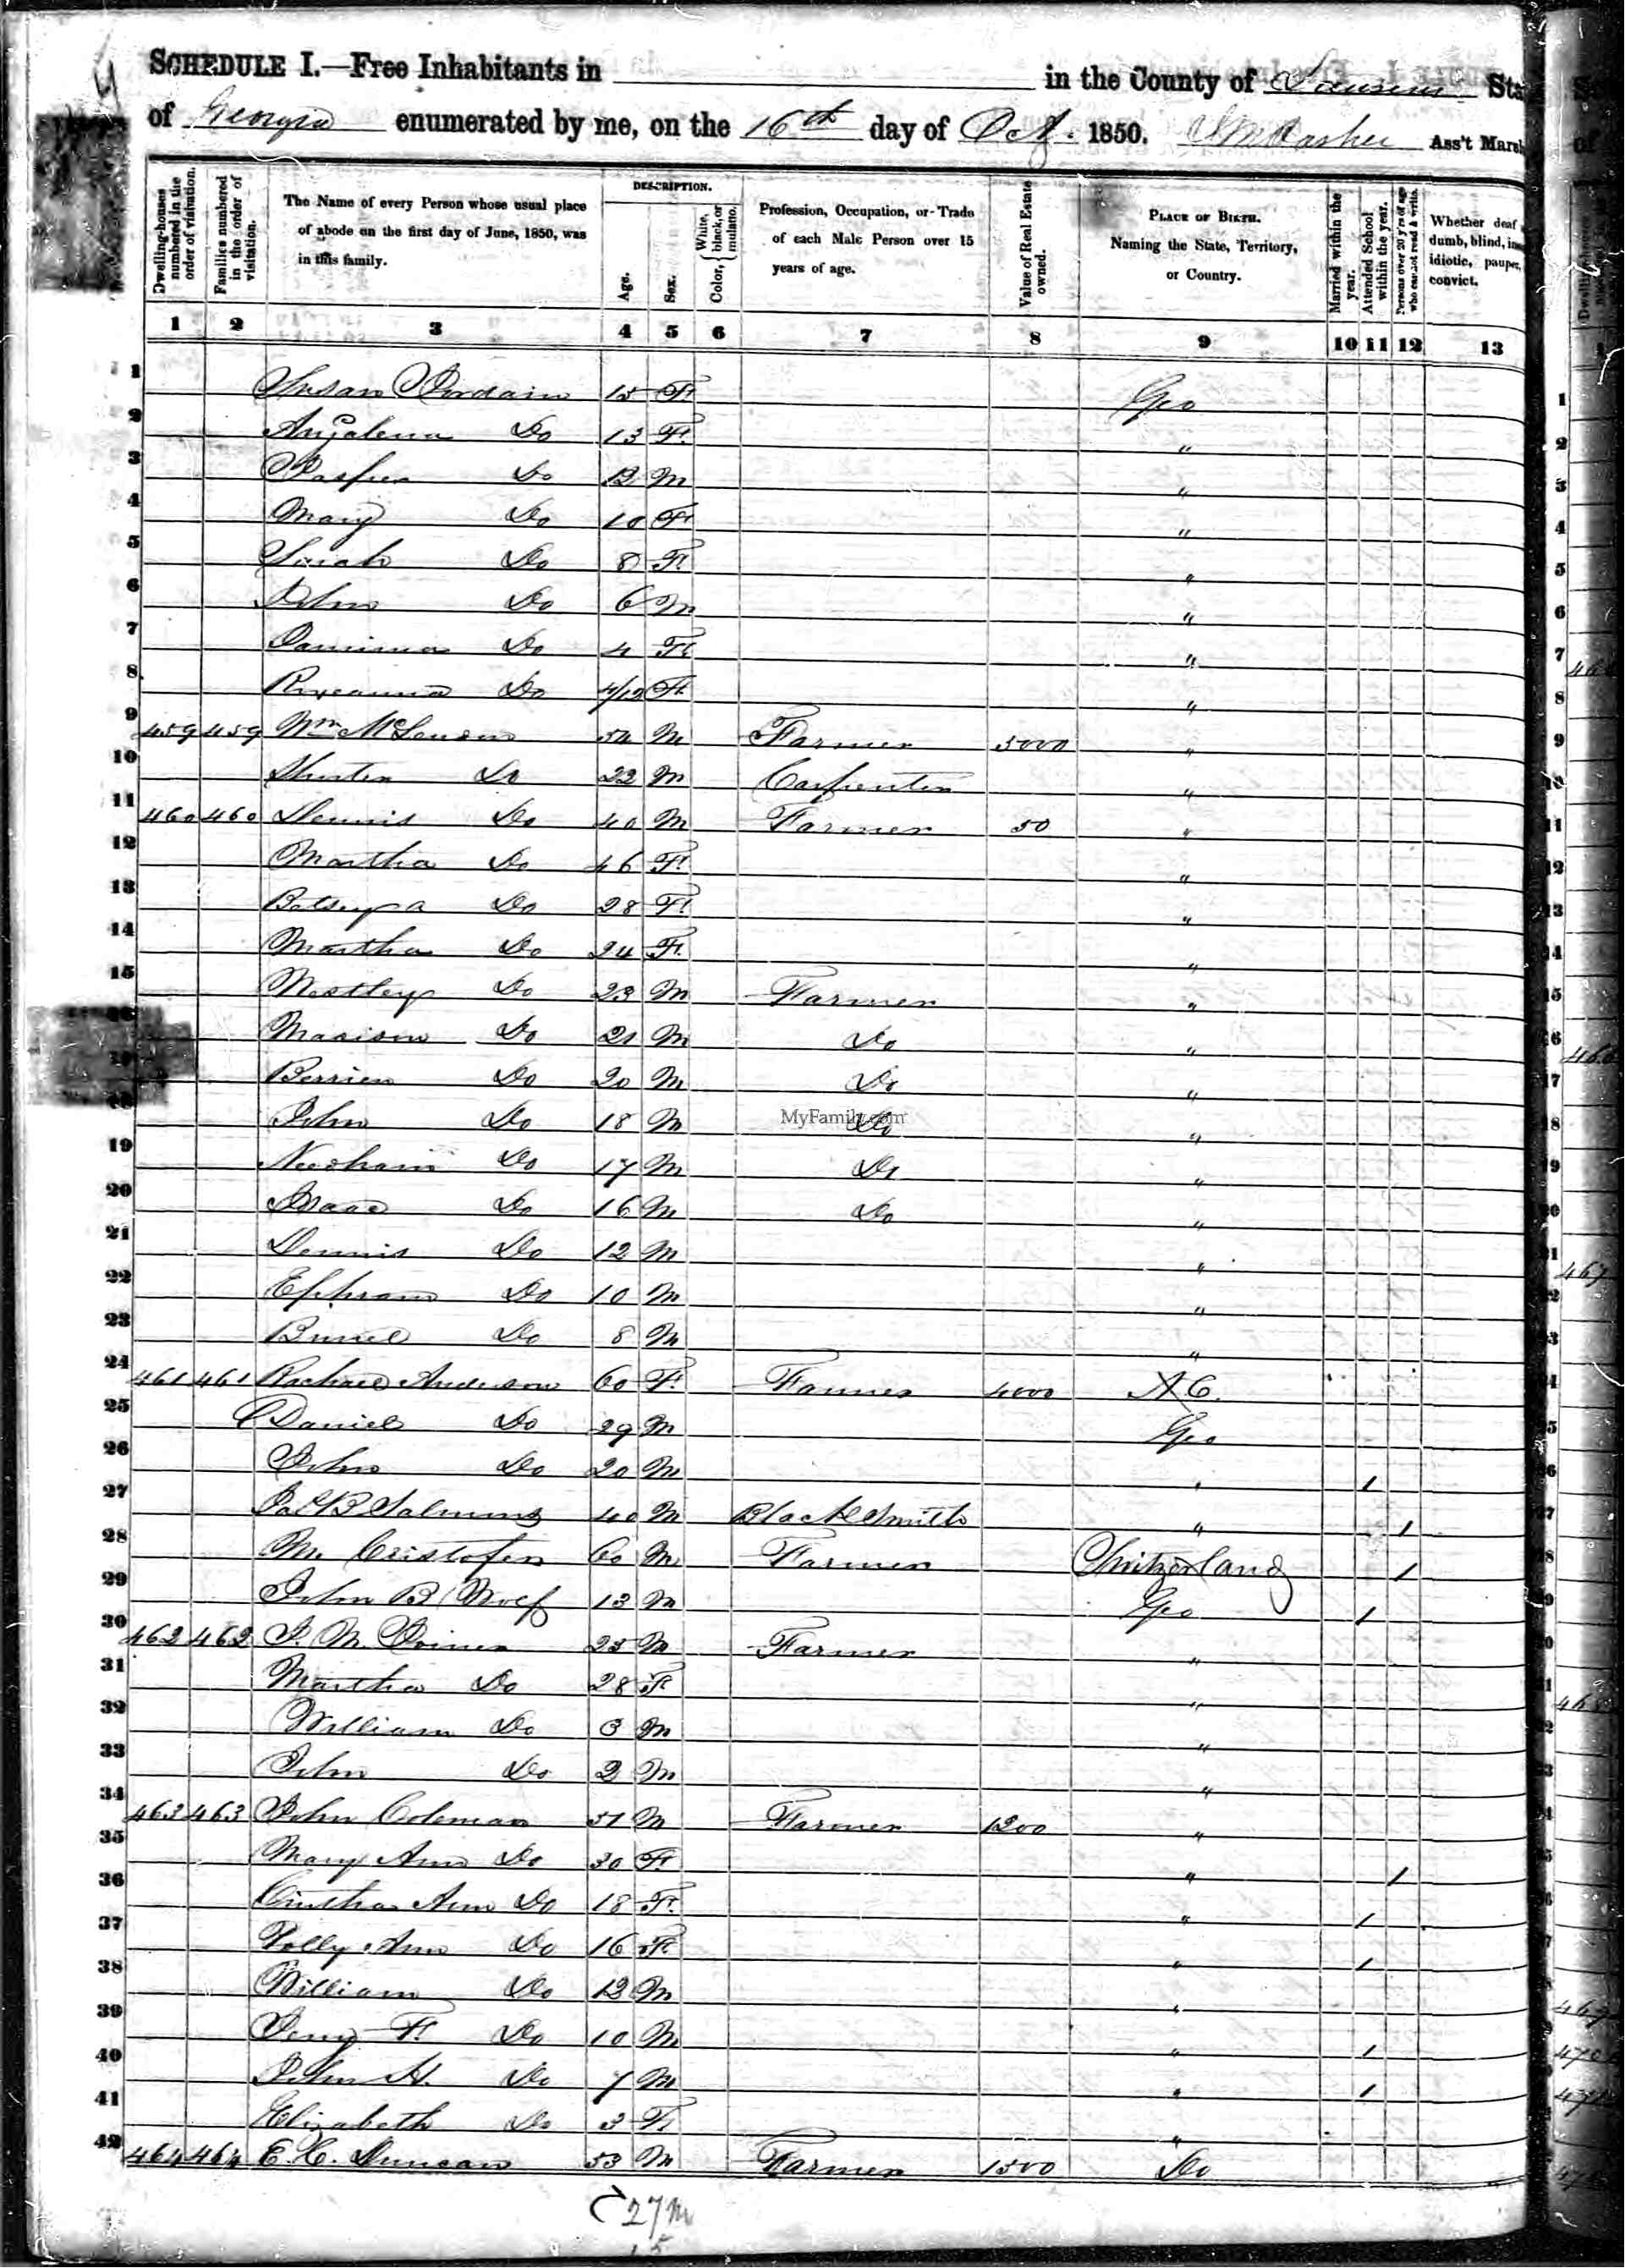 SCHEDULE I.—Free Inhabitants in in the County of Laurens Sta
of Georgia enumerated by me, on the 16th day of Oct. 1850. Ass't Marsh
Dwelling-houses numbered in the order of visitation.
Families numbered in the order of visitation.
The Name of every Person whose usual place of abode on the first day of June, 1850, was in this family.
DESCRIPTION.
Age.
Sex.
Color, { White, black, or mulatto.
Profession, Occupation, or Trade of each Male Person over 15 years of age.
Value of Real Estate owned.
PLACE OF BIRTH. Naming the State, Territory, or Country.
Married within the year.
Attended School within the year.
Persons over 20 y'rs of age who cannot read & write.
Whether deaf dumb, blind, idiotic, pauper, convict.
1 2 3 4 5 6 7 8 9 10 11 12 13
1 Susan 15 F Geo 1
2 Do 13 F " 2
3 Do 12 M " 3
4 Mary Do 10 F " 4
5 Sarah Do 8 F " 5
6 John Do 6 M " 6
7 Do 4 F " 7
8 Do 4/12 F " 8
9 459 459 Wm McLendon 54 M Farmer 5000 " 9
10 Do 22 M Carpenter " 10
11 460 460 Dennis Do 40 M Farmer 50 " 11
12 Martha Do 46 F " 12
13 Betsey a Do 28 F " 13
14 Martha Do 24 F " 14
15 Westley Do 23 M Farmer " 15
Madison Do 21 M Do " 16
Berrien Do 20 M Do " 17
John Do 18 M Do " 18
MyFamily.com
19 Needham Do 17 M Do " 19
20 Isaac Do 16 M Do " 20
21 Dennis Do 12 M " 21
22 Ephram Do 10 M " 22
23 Do 8 M " 23
24 461 461 Rachael Anderson 60 F Farmer 4000 N C. 24
25 Daniel Do 29 M Geo 25
26 John Do 20 M " 1 26
27 Salmons 40 M Black Smith " 1 27
28 M. Cristofer 60 M Farmer Switzerland 1 28
29 John B Wolf 13 M Geo 1 29
30 462 462 J. M. Joiner 25 M Farmer " 30
31 Martha Do 28 F " 31
32 William Do 3 M " 32
33 John Do 2 M " 33
34 463 463 John Coleman 51 M Farmer 1200 " 34
35 Mary Ann Do 30 F " 1 35
36 Cintha Ann Do 18 F " 1 36
37 Polly Ann Do 16 F " 1 37
38 William Do 12 M "
39 F. Do 10 M " 1
40 John H. Do 7 M " 1
41 Elizabeth Do 3 F "
42 464 464 E. C. Duncan 53 M Farmer 1500 Do
27 M
15